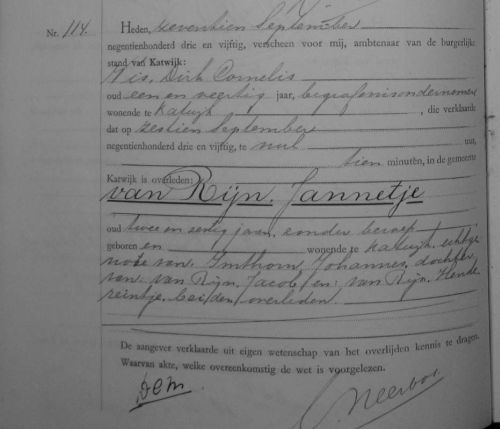 Nr. 114.
Heden, zeventien September
negentienhonderd drie en vijftig, verscheen voor mij, ambtenaar van de burgerlijke
stand van Katwijk:
Dirk Cornelis
oud een en veertig jaar, begrafenisondernemer
wonende te Katwijk, die verklaarde
dat op zestien September
negentienhonderd drie en vijftig, te nul uur,
tien minuten, in de gemeente
Katwijk is overleden:
van Rijn, Jannetje
oud twee en zestig jaar, zonder beroep
geboren en wonende te Katwijk, echtge
note van: Imthorn, Johannes, dochter
van: van Rijn, Jacob, en: van Rijn, Hende
reintje, beiden overleden
De aangever verklaarde uit eigen wetenschap van het overlijden kennis te dragen.
Waarvan akte, welke overeenkomstig de wet is voorgelezen.